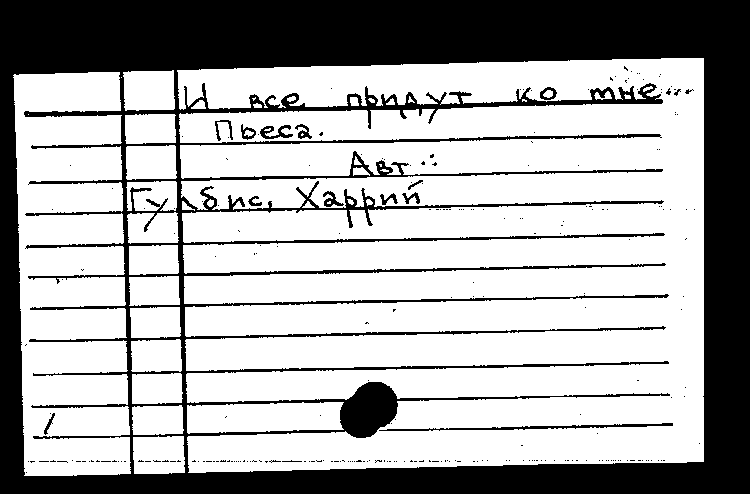 И все придут ко мне...
Пьеса.
Авт.:
Гулбис, Харрий
/